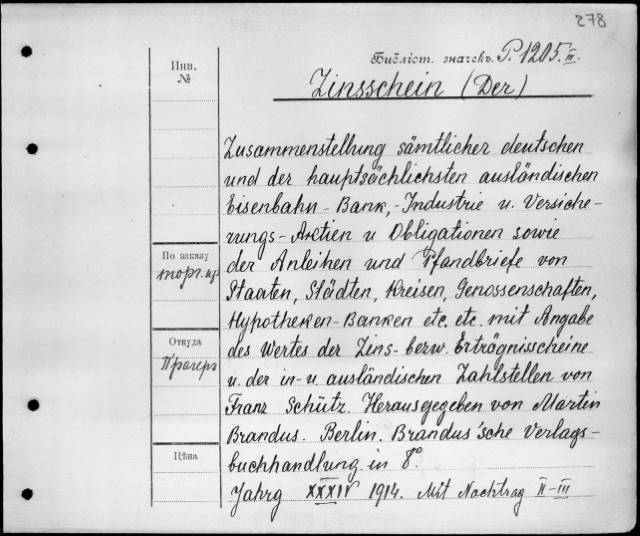 278
Библіот. значекъ. P. 1205. III.
Инв.
№
Zinsschein (Der)
Zusammenstellung sämtlicher deutschen
und der hauptsächlichsten ausländischen
Eisenbahn-Bank,-Industrie u. Versiche-
rungs-Aktien u Obligationen sowie
der Anleihen und Pfandbriefe von
По заказу
торг. пр
Staaten, Städten, Kreisen, Genossenschaften,
Hypotheken-Banken etc. etc. mit Angabe
Откуда
des Wertes der Zins- bezw. Erträgnisscheine
Прагеръ
u. der in- u. ausländischen Zahlstellen von
Franz Schütz. Herausgegeben von Martin
Brandus. Berlin. Brandus'sche Verlags-
Цѣна
buchhandlung. in 8°.
Jahrg XXXIV 1914. Mit Nachtrag II-III